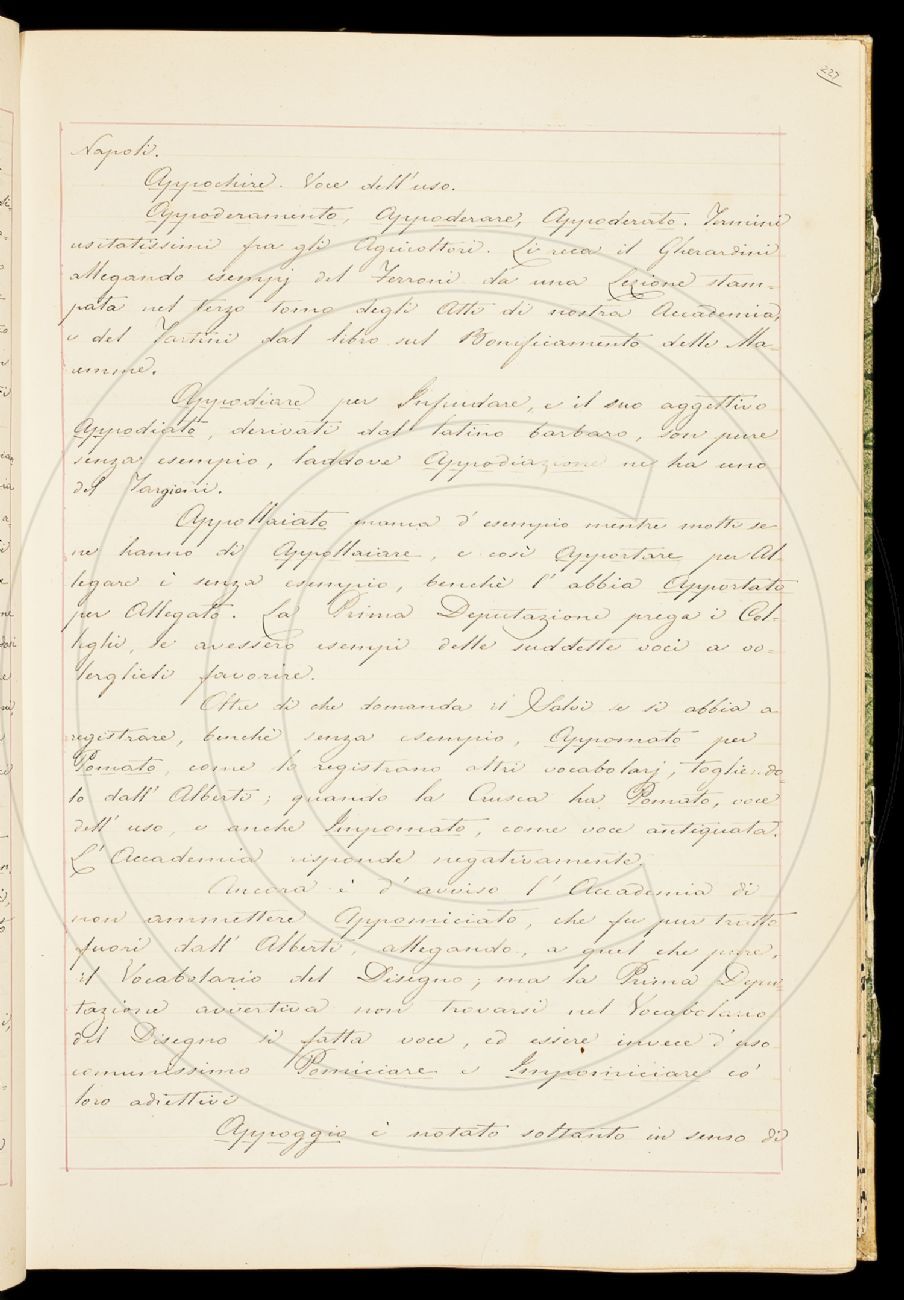 227
Napoli.
Appochire. Voce dell'uso.
Appoderamento, Appoderare, Appoderato. Termini
usitatissimi fra gli Agricoltori. Li reca il Gherardini
allegando esempj del Ferroni da una Lezione stam-
pata nel terzo tomo degli Atti di nostra Accademia,
e del Tartini dal libro sul Bonificamento delle Ma-
remme.
Appodiare per Infeudare, e il suo aggettivo
Appodiato, derivati dal latino barbaro, son pure
senza esempio, laddove Appodiazione ne ha uno
del Targioni.
Appollaiato manca d'esempio mentre molti se
ne hanno di Appollaiare, e così Apportare per Al-
legare è senza esempio, benchè l'abbia Apportato
per Allegato. La Prima Deputazione prega i Col-
leghi, se avessero esempi delle suddette voci a vo-
lerglieli favorire.
Oltre di che domanda il Salvi se si abbia a
registrare, benchè senza esempio, Appomato per
Pomato, come lo registrano altri vocabolarj, togliendo-
lo dall'Alberti; quando la Crusca ha Pomato, voce
dell'uso, e anche Impomato, come voce antiquata.
L'Accademia risponde negativamente.
Ancora è d'avviso l'Accademia di
non ammettere Appomiciato, che fu pur tratto
fuori dall'Alberti, allegando, a quel che pare,
il Vocabolario del Disegno; ma la Prima Depu-
tazione avvertiva non trovarsi nel Vocabolario
del Disegno sì fatta voce, ed essere invece d'uso
comunissimo Pomiciare e Impomiciare co'
loro adiettivi
Appoggio è notato soltanto in senso di